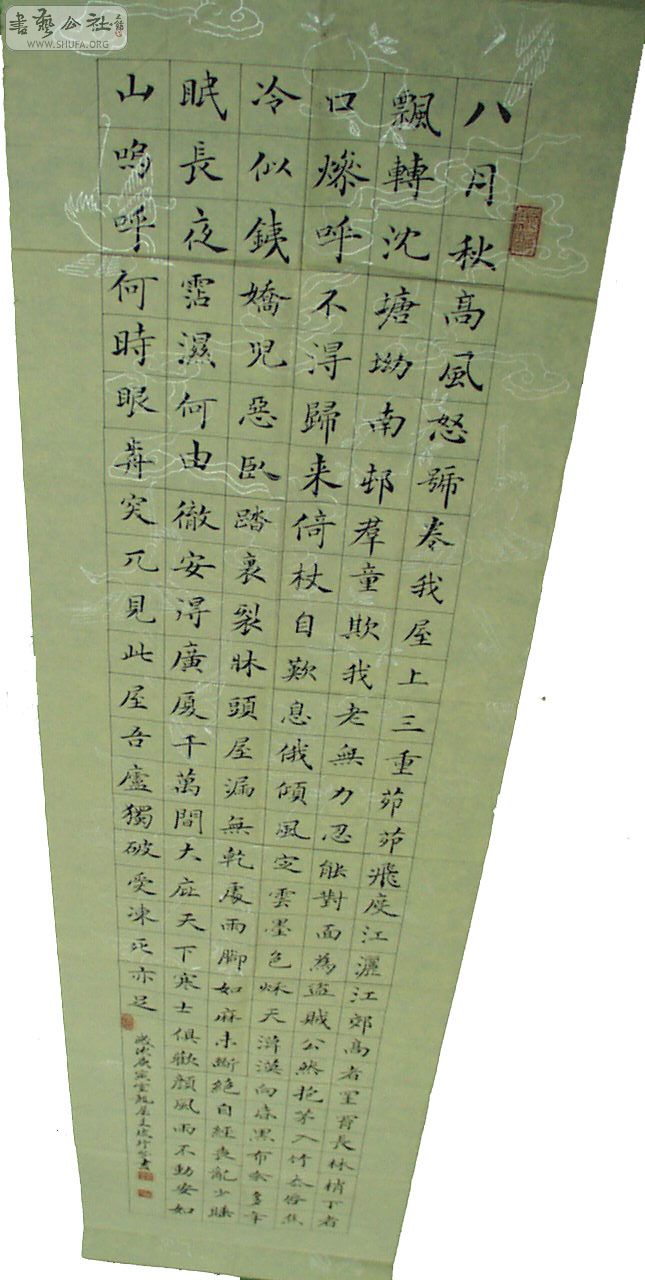 書藝公社
WWW.SHUFA.ORG
八月秋高風怒號卷我屋上三重茆茆飛度江灑江郊高者罥長林梢下者
飄轉沈塘坳南邨羣童欺我老無力忍能對面為盜賊公然抱茅入竹去脣焦
口燥呼不淂歸来倚杖自歎息俄傾風定雲墨色秌天漠向昏黑布衾多年
冷似銕嬌児惡臥踏裏裂牀頭屋漏無乾處雨腳如麻未斷絕自經喪亂少睡
眠長夜霑濕何由徹安淂廣厦千萬間大庇天下寒士俱歡顏風雨不動安如
山嗚呼何時眼歬突兀見此屋吾廬獨破受凍死亦足